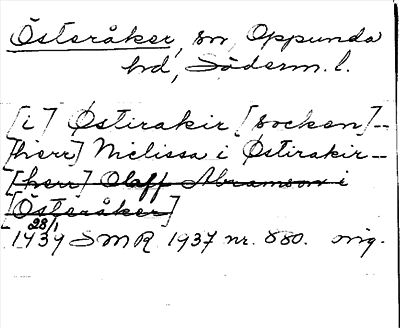 Österåker, sn, Oppunda
hd, Söderm. l.
[i] Østirakir [socken] --
[herr] Niclissa i Østirakir --
[herr] Olaff Abramson i
[Österåker]
28/1
1439 SMR 1937 nr. 880. orig.